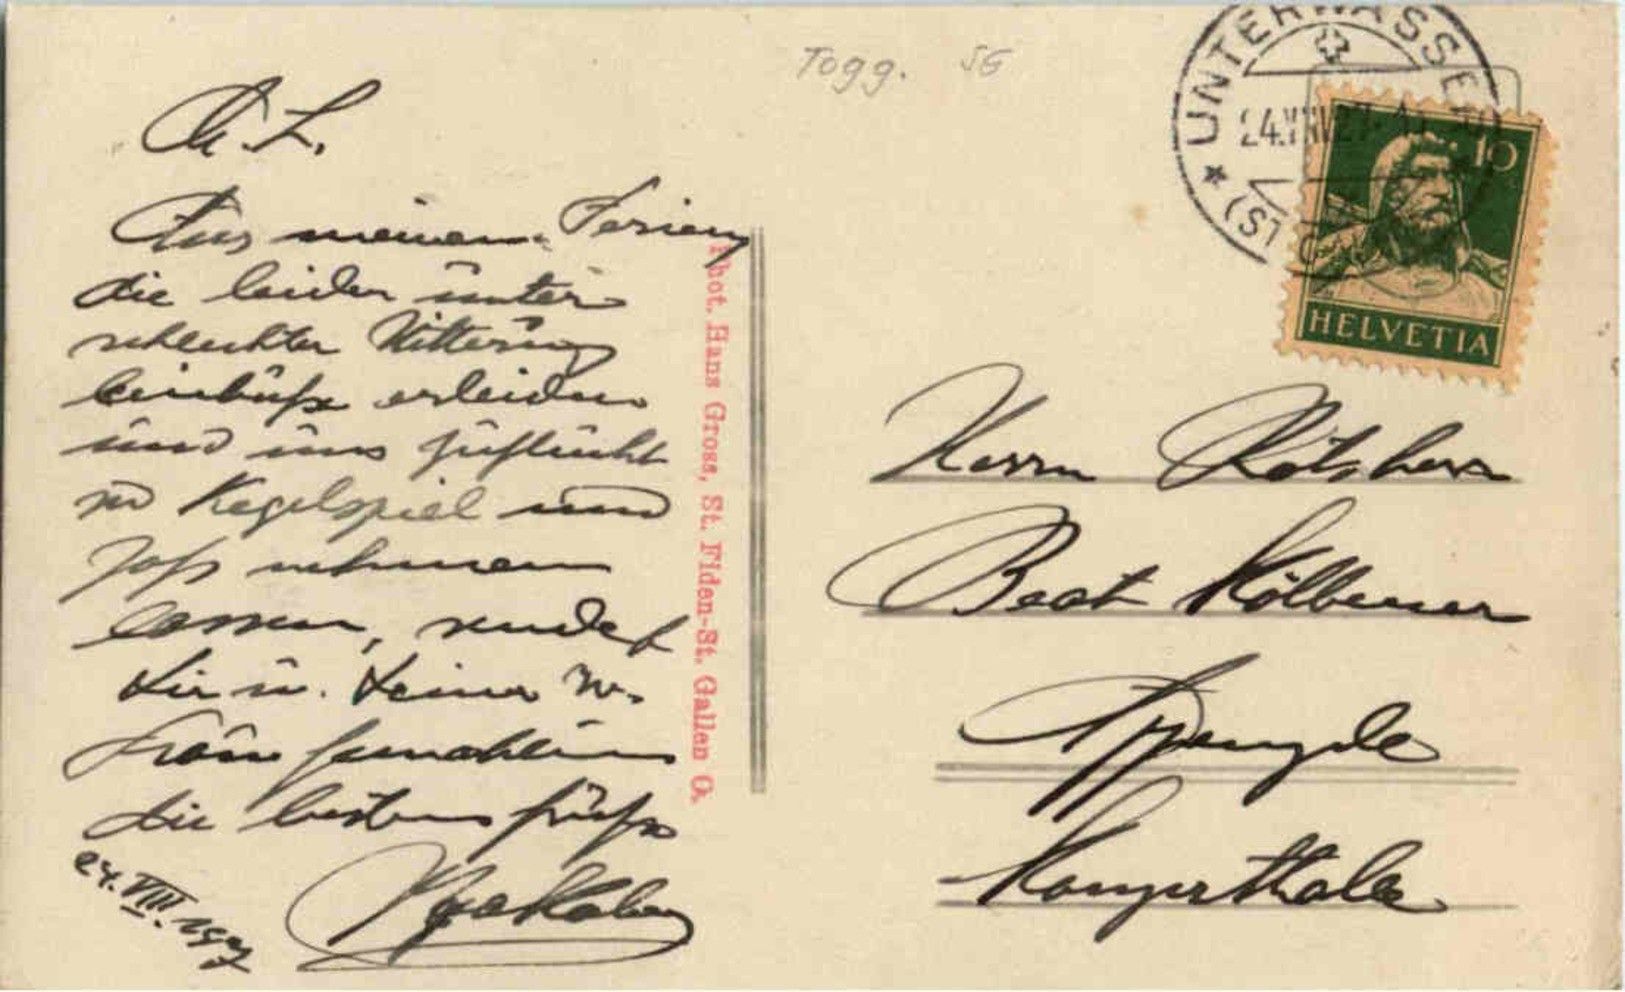 Togg. SG
UNTERWASSER
24.VIII.27
HELVETIA
10
M. L.
Aus meinen Ferien
die leider unter
schlechter Witterung
Einbuße erleiden
und uns Zuflucht
zu Kegelspiel und
Jaß nehmen
lassen, sendet
Dir u. Deiner w.
Frau Gemahlin
die besten Grüße
24. VIII. 1927
Phot. Hans Gross, St. Fiden-St. Gallen O.
Herrn Ratsherr
Beat Kölbener
Appenzell